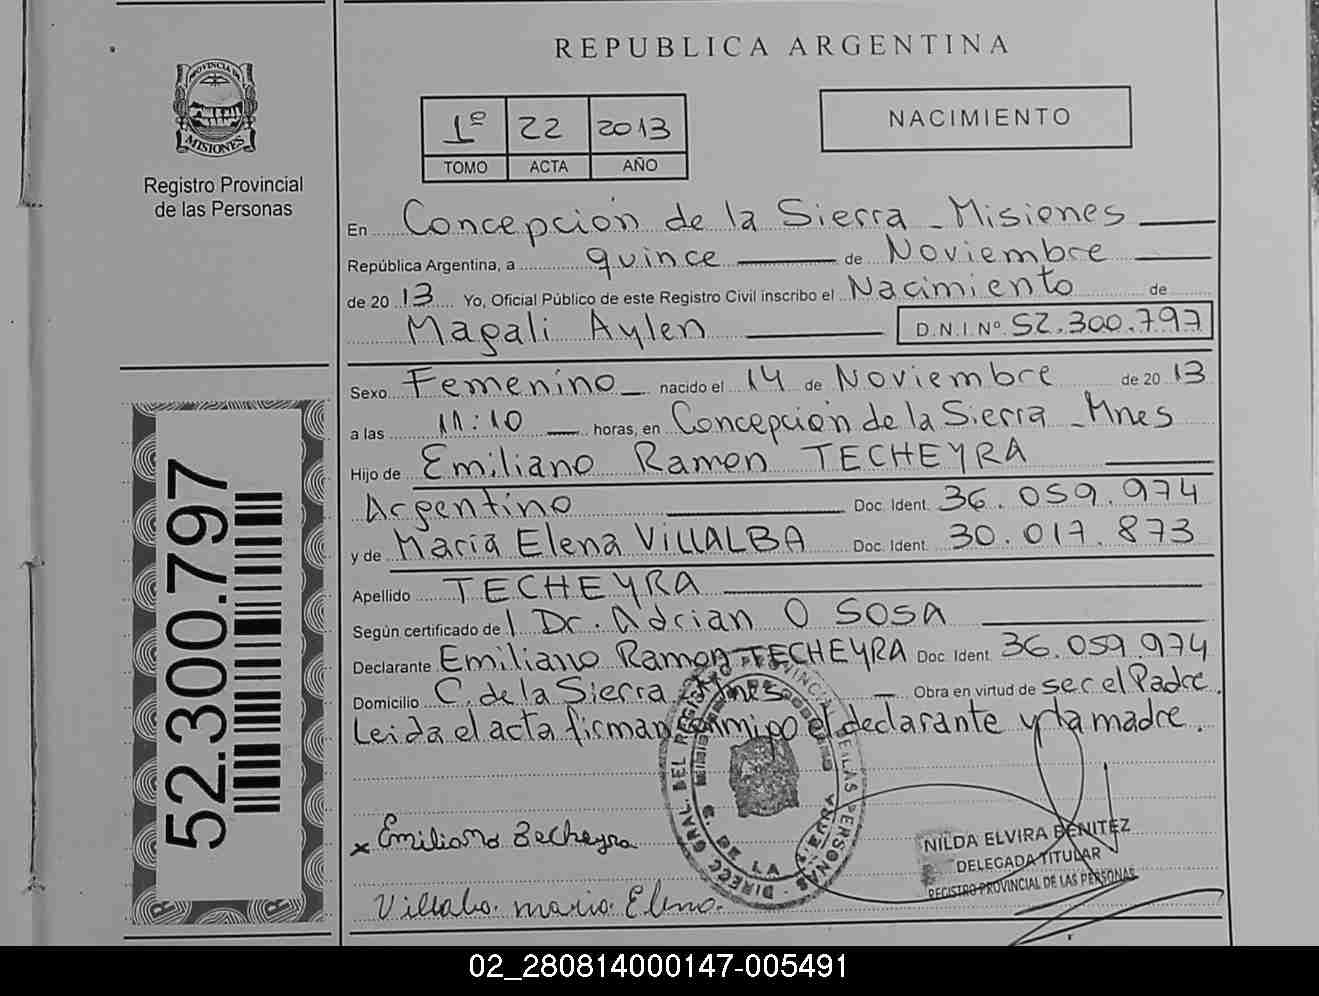 REPUBLICA ARGENTINA
PROVINCIA DE
MISIONES
Registro Provincial
de las Personas
1º 22 2013
TOMO ACTA AÑO
NACIMIENTO
En Concepción de la Sierra - Misiones
República Argentina, a quince de Noviembre
de 2013 Yo, Oficial Público de este Registro Civil inscribo el Nacimiento de
Magali Aylen D.N.I.Nº 52.300.797
Sexo Femenino nacido el 14 de Noviembre de 2013
a las 11:10 horas, en Concepción de la Sierra - Mnes
Hijo de Emiliano Ramon TECHEYRA
Argentino Doc. Ident. 36.059.974
y de Maria Elena VILLALBA Doc. Ident. 30.017.873
Apellido TECHEYRA
Según certificado de l Dr. Adrian O SOSA
Declarante Emiliano Ramon TECHEYRA Doc. Ident. 36.059.974
Domicilio C. de la Sierra - Mnes Obra en virtud de ser el Padre.
Leida el acta firman conmigo el declarante y la madre.
52.300.797
DIRECC. GRAL. DEL REGISTRO PROVINCIAL DE LAS PERSONAS
C. DE LA SIERRA
x Emiliano Techeyra
Villalba Maria Elena.
NILDA ELVIRA BENITEZ
DELEGADA TITULAR
REGISTRO PROVINCIAL DE LAS PERSONAS
02_280814000147-005491